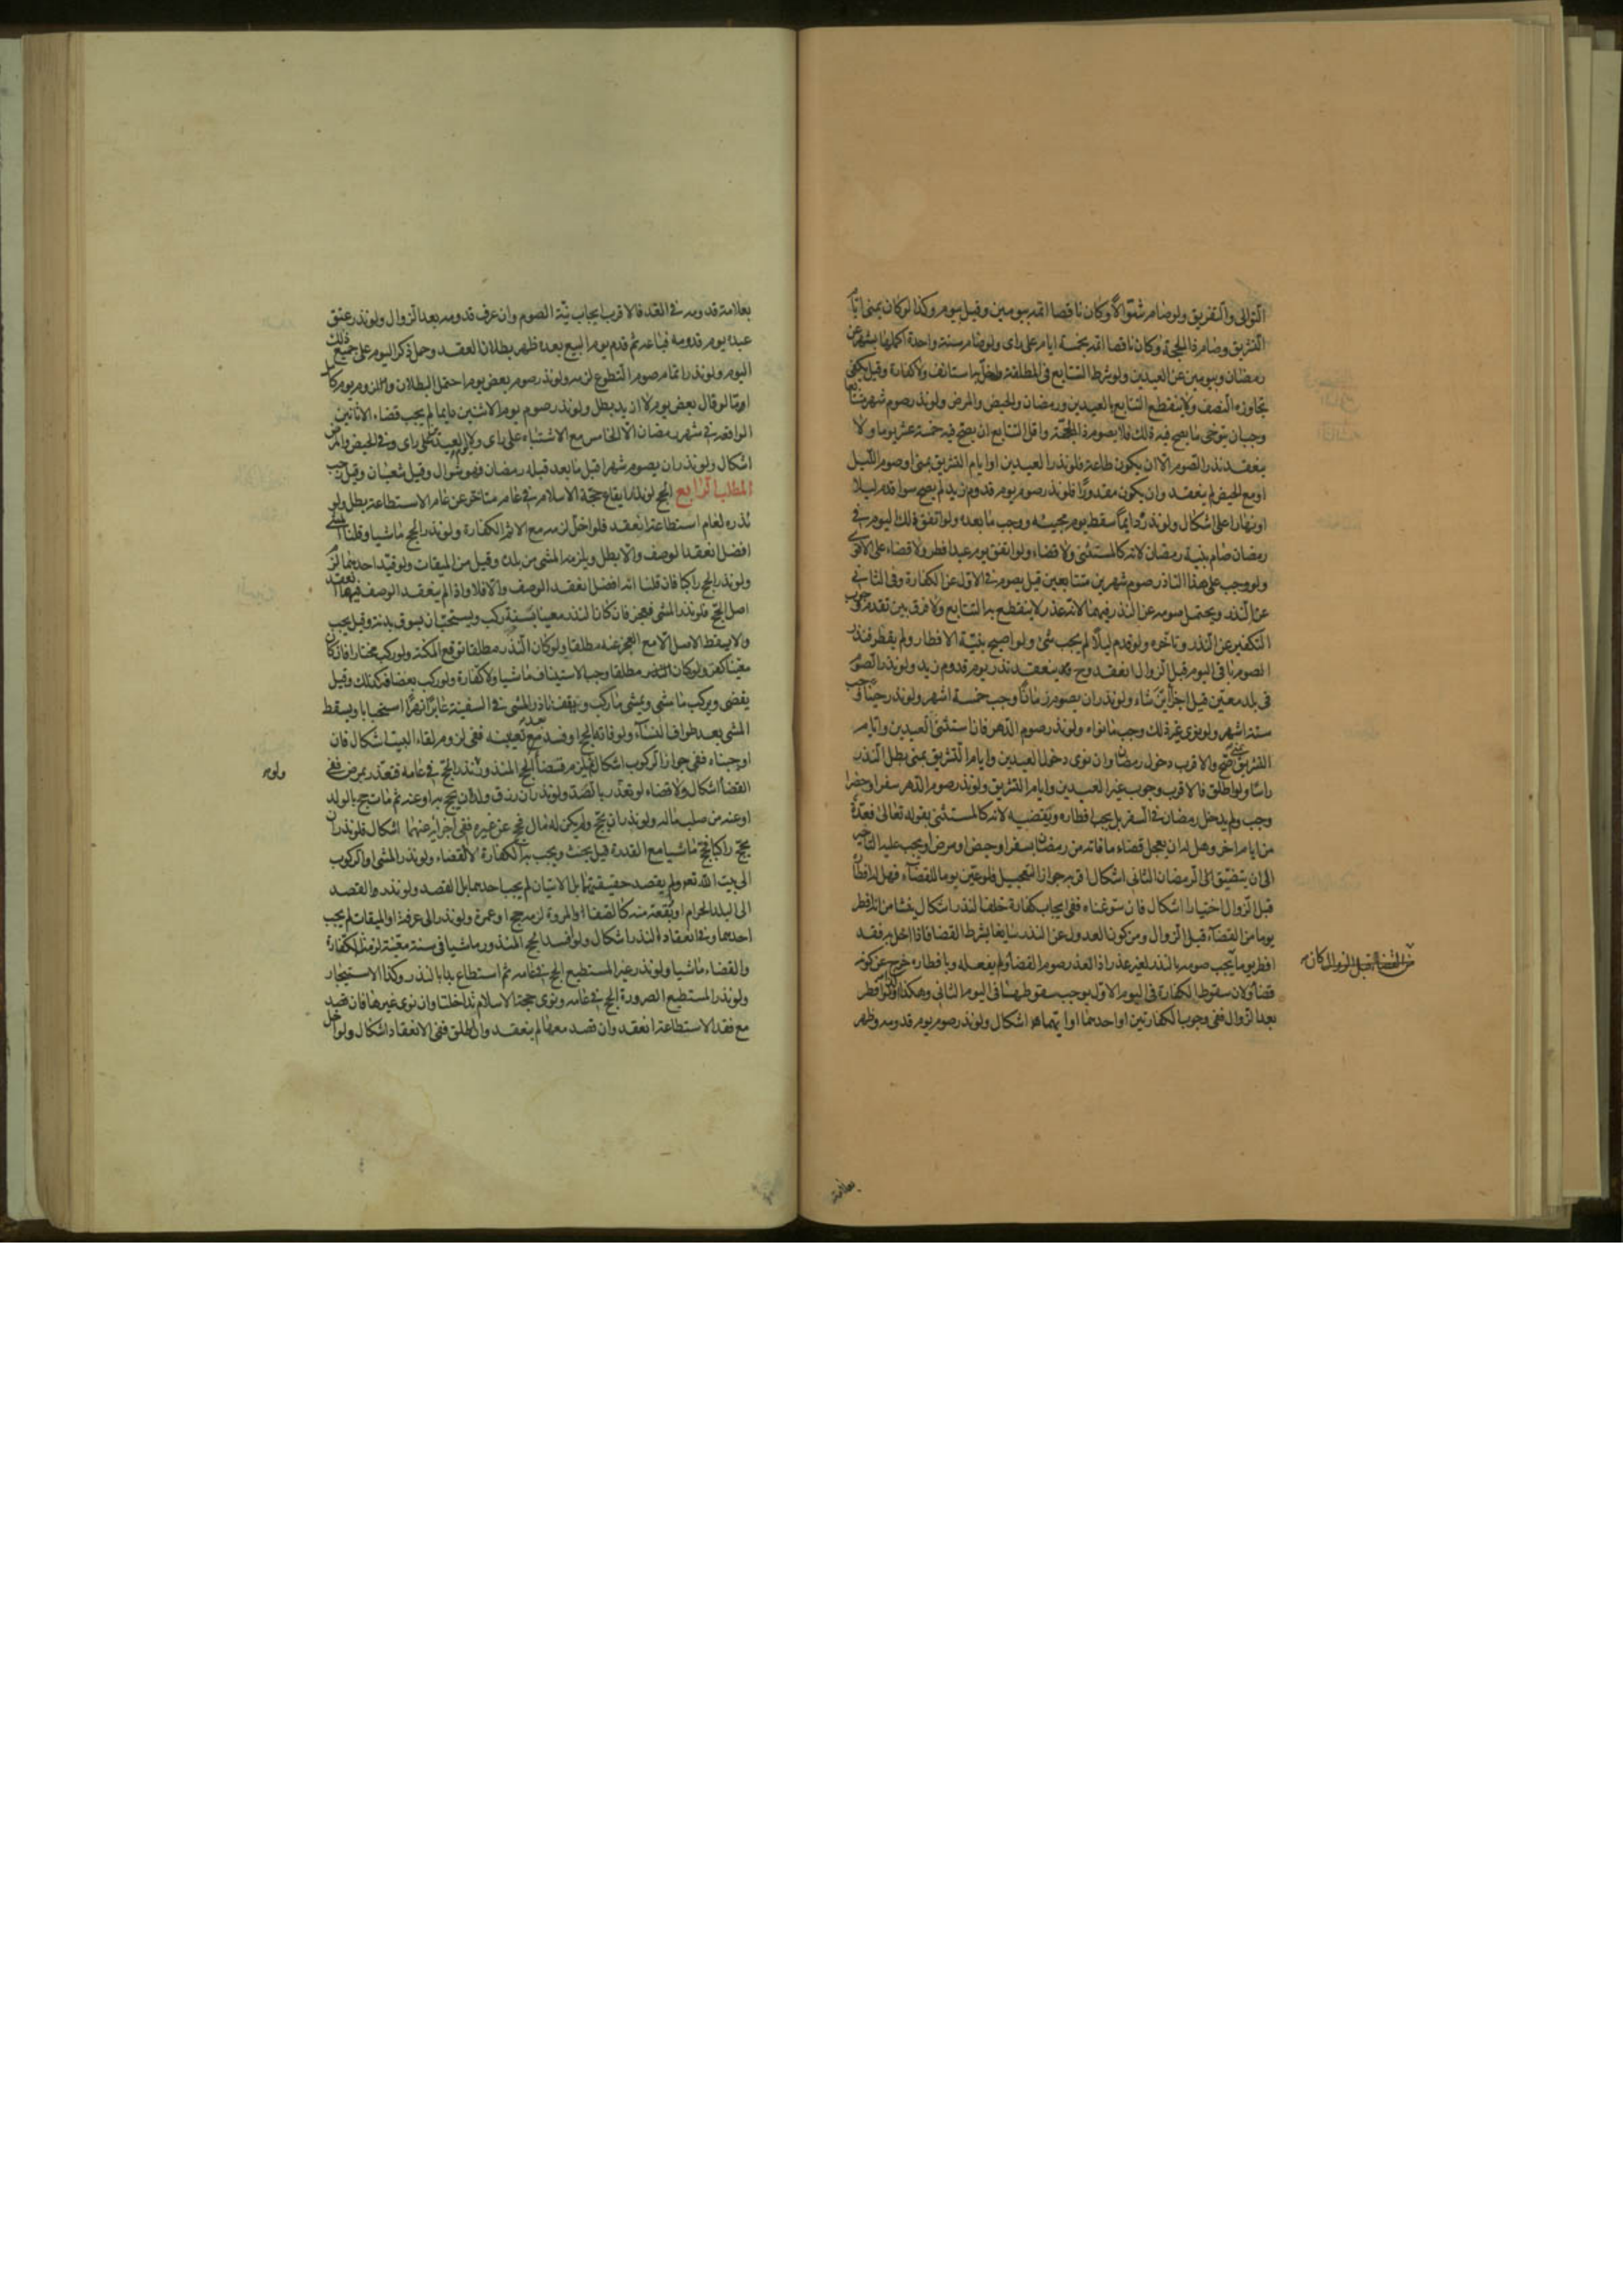 التوالى والتفريق ولو صام شوالا وكان ناقصا اتمه بيومين وقيل بيوم وكذا لو كان بمنى ايام
التشريق وصام ذا الحجة وكان ناقصا اتمه بخمسة ايام على راى ولو صام سنة واحدة اكملها بشهر عن
رمضان وبيومين عن العيدين ولو شرط التتابع فى المطلقة فاخل بها استانف ولا كفارة وقيل يكفى
تجاوزه النصف ولا ينقطع التتابع بالعيدين ورمضان والحيض والمرض ولو نذر صوم شهر متتابعا
وجب ان يتوخى ما يصح فيه ذلك فلا يصوم ذا الحجة واقل التتابع ان يصح فيه خمسة عشر يوما ولا
ينعقد نذر الصوم الا ان يكون طاعة فلو نذر العيدين او ايام التشريق بمنى او صوم الليل
او مع الحيض لم ينعقد وان يكون مقدورا فلو نذر صوم يوم قدوم زيد لم يصح سوا قدم ليلا
او نهارا على اشكال ولو نذر دايما سقط يوم مجيئه ووجب ما بعده ولو اتفق ذلك اليوم فى
رمضان صام بنية رمضان لانه كالمستثنى ولا قضاء ولو اتفق يوم عيد افطر ولا قضاء على الاقوى
ولو وجب على هذا الناذر صوم شهرين متتابعين قيل يصوم فى الاول عن الكفارة وفى الثانى
عن النذر ويحتمل صومه عن النذر فيهما لانه عذر لا ينقطع به التتابع ولا فرق بين تقدم وجوب
التكفير عن النذر وتاخره ولو قدم ليلا لم يجب شئ ولو اصبح بنية الافطار ولم يفطر فنذر
الصوم باقى اليوم قبل الزوال انعقد وح ينعقد نذر يوم قدوم زيد ولو نذر الصوم
فى بلد معين قيل اجزا اين شاء ولو نذر ان يصوم زمانا وجب خمسة اشهر ولو نذر حينا وجب
ستة اشهر ولو نوى غير ذلك وجب ما نواه ولو نذر صوم الدهر فان استثنى العيدين وايام
التشريق بمنى صح والاقرب دخول رمضان وان نوى دخول العيدين وايام التشريق بمنى بطل النذر
راسا ولو اطلق فالاقرب وجوب غير العيدين وايام التشريق ولو نذر صوم الدهر سفرا وحضرا
وجب ولم يدخل رمضان فى السفر بل يجب افطاره ويقضيه لانه كالمستثنى بقوله تعالى فعدة
من ايام اخر وهل له ان يعجل قضاء ما فاته من رمضان بسفر او حيض او مرض او يجب عليه التاخير
الى ان يتضيق الى رمضان الثانى اشكال اقربه جواز التعجيل فلو عين يوما للقضاء فهل له افطاره
قبل الزوال اختيارا اشكال فان سوغناه ففى ايجاب كفارة خلف النذر اشكال ينشا من انه افطر
يوما من القضاء قبل الزوال ومن كون العدول عن النذر سايغا بشرط القضا فاذا اخل به فقد
افطر يوما يجب صومه بالنذر لغير عذر اذ العذر صوم القضا ولم يفعله وبافطاره خرج عن كونه
قضا ولان سقوط الكفارة فى اليوم الاول يوجب سقوطها فى اليوم الثانى وهكذا ولو افطر
بعد الزوال ففى وجوب الكفارتين او احدهما او ايتهما هو اشكال ولو نذر صوم يوم قدومه وظهر
من القضا قبل الزوال كان
بعلامة
بعلامة قدومه فى الغد فالاقرب ايجاب نية الصوم وان عرف قدومه بعد الزوال ولو نذر عتق
عبده يوم قدومه فباعه ثم قدم يوم البيع بعده ظهر بطلان العقد وحمل ذكر اليوم على جميع ذلك
اليوم ولو نذر اتمام صوم التطوع لزمه ولو نذر صوم بعض يوم احتمل البطلان واللزوم يوم كامل
اما لو قال بعض يوم لا ازيد بطل ولو نذر صوم يوم الاثنين دايما لم يجب قضاء الاثانين
الواقعة فى شهر رمضان الا الخامس مع الاشتباه على راى ولا يوم العيد على راى وفى الحيض والمرض
اشكال ولو نذر ان يصوم شهرا قبل ما بعد قبله رمضان فهو شوال وقيل شعبان وقيل رجب
المطلب الرابع الحج لو نذر ايقاع حجة الاسلام فى عام متاخر عن عام الاستطاعة بطل ولو
نذره لعام استطاعته انعقد فلو اخل لزمه مع الاثم الكفارة ولو نذر الحج ماشيا وقلنا المشى
افضل انعقد الوصف والا بطل ويلزمه المشى من بلده وقيل من الميقات ولو قيد احدهما لزم
ولو نذر الحج راكبا فان قلنا انه افضل انعقد الوصف والا فلا واذا لم ينعقد الوصف فيهما انعقد
اصل الحج فلو نذر المشى فعجز فان كان النذر معينا بسنة ركب ويستحب ان يسوق بدنة وقيل يجب
ولا يسقط الاصل الا مع العجز عنه مطلقا ولو كان النذر مطلقا توقع المكنة ولو ركب مختارا فان كان
معينا كفر ولو كان مطلقا وجب الاستيناف ماشيا ولا كفارة ولو ركب بعضا فكذلك وقيل
يقضى ويركب ما مشى ويمشى ما ركب ويقف ناذر المشى فى السفينة عابرا نهرا استحبابا ويسقط
المشى بعد طواف النساء ولو فاته الحج او فسد مع تعيينه ففى لزوم لقاء البيت اشكال فان
اوجبناه ففى جواز الركوب اشكال ويلزم قضا الحج المنذور ولو نذر الحج فى عامه فتعذر بمرض ففى
القضا اشكال ولا قضاء لو تعذر بالصد ولو نذر ان رزق ولدا ان يحج به او عنه ثم مات حج بالولد
او عنه من صلب ماله ولو نذر ان يحج ولم يكن له مال فحج عن غيره ففى اجزائه عنهما اشكال فلو نذر ان
يحج راكبا فحج ماشيا مع القدرة قيل يحنث ويجب به الكفارة لا القضاء ولو نذر المشى او الركوب
الى بيت الله تعه ولم يقصد حقيقتهما بل الاتيان لم يجب احدهما بل القصد ولو نذر القصد
الى البلد الحرام او بقعة منه كالصفا او المروة لزمه حج او عمرة ولو نذر الى عرفة او الميقات لم يجب
احدهما وفى انعقاد النذر اشكال ولو افسد الحج المنذور ماشيا فى سنة معينة لزمته الكفارة
والقضاء ماشيا ولو نذر غير المستطيع الحج فى عامه ثم استطاع بدا بالنذر وكذا الاستيجار
ولو نذر المستطيع الصرورة الحج فى عامه ونوى حجة الاسلام تداخلتا وان نوى غيرها فان قصد
مع فقد الاستطاعة انعقد وان قصد معها لم ينعقد وان اطلق ففى الانعقاد اشكال ولو اخل